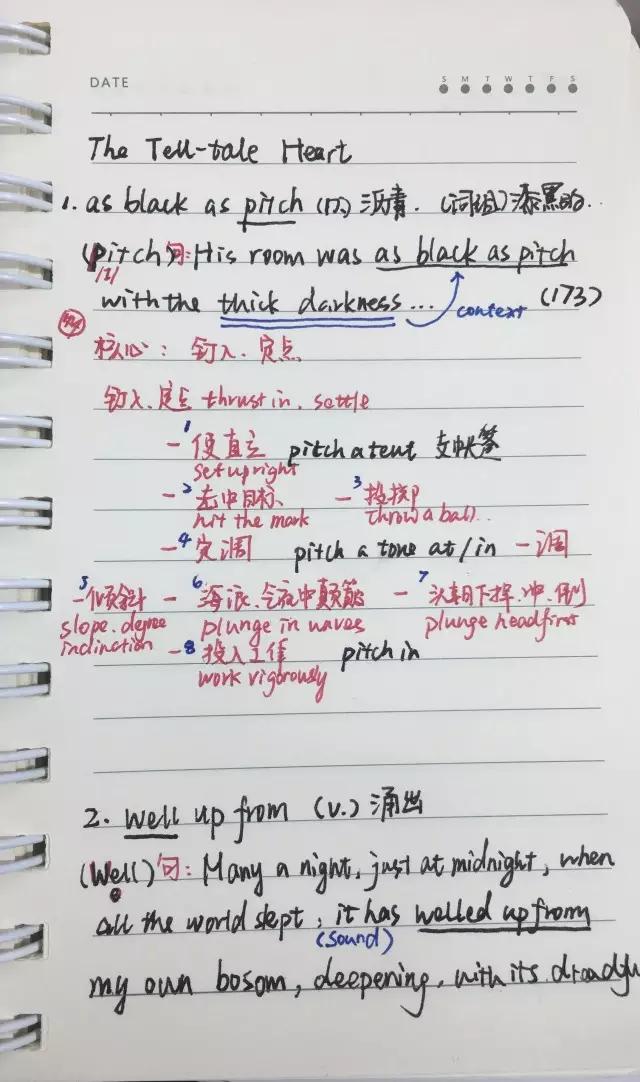 DATE
S M T W T F S
The Tell-tale Heart
1. as black as pitch (n) 沥青. (词组)漆黑的.
(pitch) 句: His room was as black as pitch
/ɪ/
with the thick darkness... context (173)
核心: 钉入、定点
钉入、定点 thrust in, settle
1 - 使直立 pitch a tent 支帐篷
set upright
2 - 击中目标 3 - 投掷
hit the mark throw a ball
4 - 定调 pitch a tone at/in 一调
5 - 倾斜 6 - 海浪、中颠簸 7 - 头朝下摔、冲、倒
slope. degree plunge in waves plunge headfirst
inclination 8 - 投入工作 pitch in
work vigorously
2. well up from (v.) 涌出
(Well) 句: Many a night, just at midnight, when
e
all the world slept, it has welled up from
(sound)
my own bosom, deepening, with its dreadfu